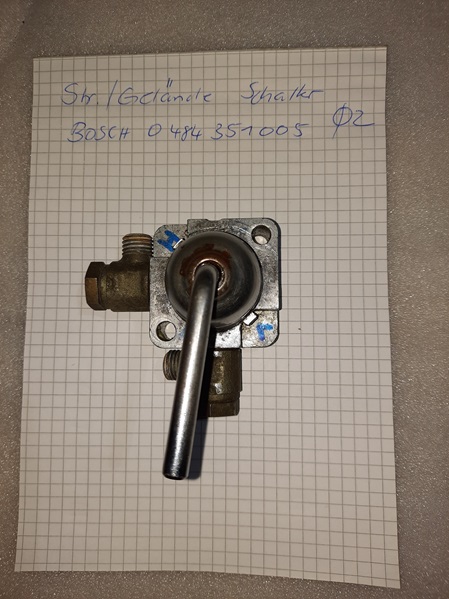 Str./Gelände Schalter
BOSCH 0 484 351 005 Ø2
H